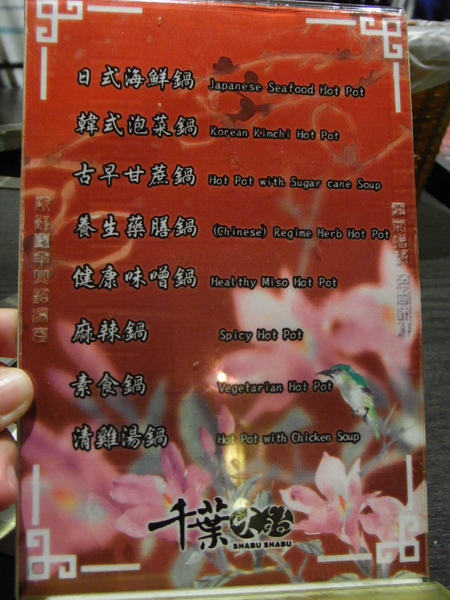 日式海鮮鍋 Japanese Seafood Hot Pot
韓式泡菜鍋 Korean Kimchi Hot Pot
古早甘蔗鍋 Hot Pot with Sugar cane Soup
養生藥膳鍋 (Chinese) Regime Herb Hot Pot
健康味噌鍋 Healthy Miso Hot Pot
麻辣鍋 Spicy Hot Pot
素食鍋 Vegetarian Hot Pot
清雞湯鍋 Hot Pot with Chicken Soup
千葉火鍋
SHABU SHABU